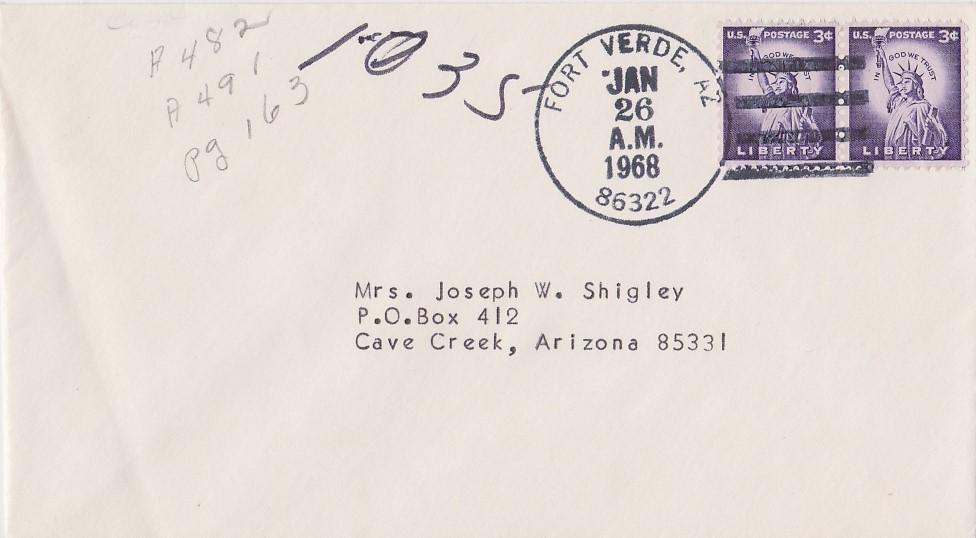 A 482
A 491
pg 163
1035-
FORT VERDE, AZ
JAN
26
A.M.
1968
86322
U.S. POSTAGE 3¢
IN GOD WE TRUST
LIBERTY
U.S. POSTAGE 3¢
IN GOD WE TRUST
LIBERTY
Mrs. Joseph W. Shigley
P.O.Box 412
Cave Creek, Arizona 85331